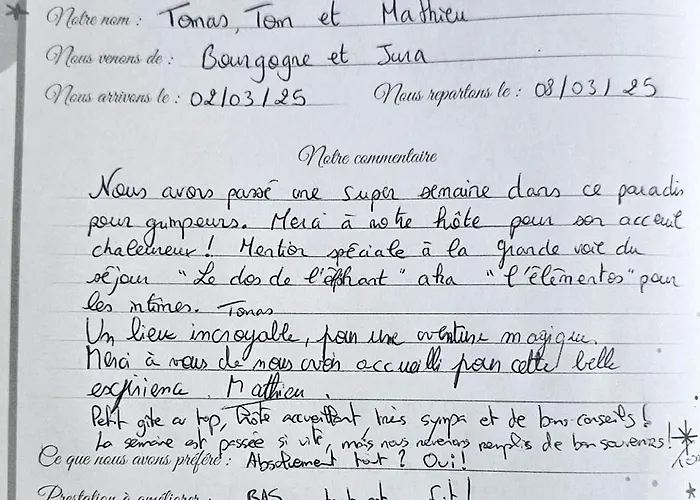 Notre nom : Tomas, Tom et Mathieu
Nous venons de : Bourgogne et Jura
Nous arrivons le : 02/03/25 Nous repartons le : 08/03/25
Notre commentaire
Nous avons passé une super semaine dans ce paradis
pour grimpeurs. Merci à notre hôte pour son acceuil
chaleureux ! Mention spéciale à la grande voie du
séjour "Le dos de l'éléphant" aka "l'élémentos" pour
les intimes. Tomas
Un lieu incroyable, pour une aventure magique.
Merci à vous de nous avoir accueilli pour cette belle
expérience. Mathieu.
Petit gîte au top, hôte accueillant très sympa et de bons conseils !
La semaine est passée si vite, mais nous revenons remplis de bon souvenirs !
Ce que nous avons préféré : Absolument tout ? Oui !
Prestation à améliorer : RAS